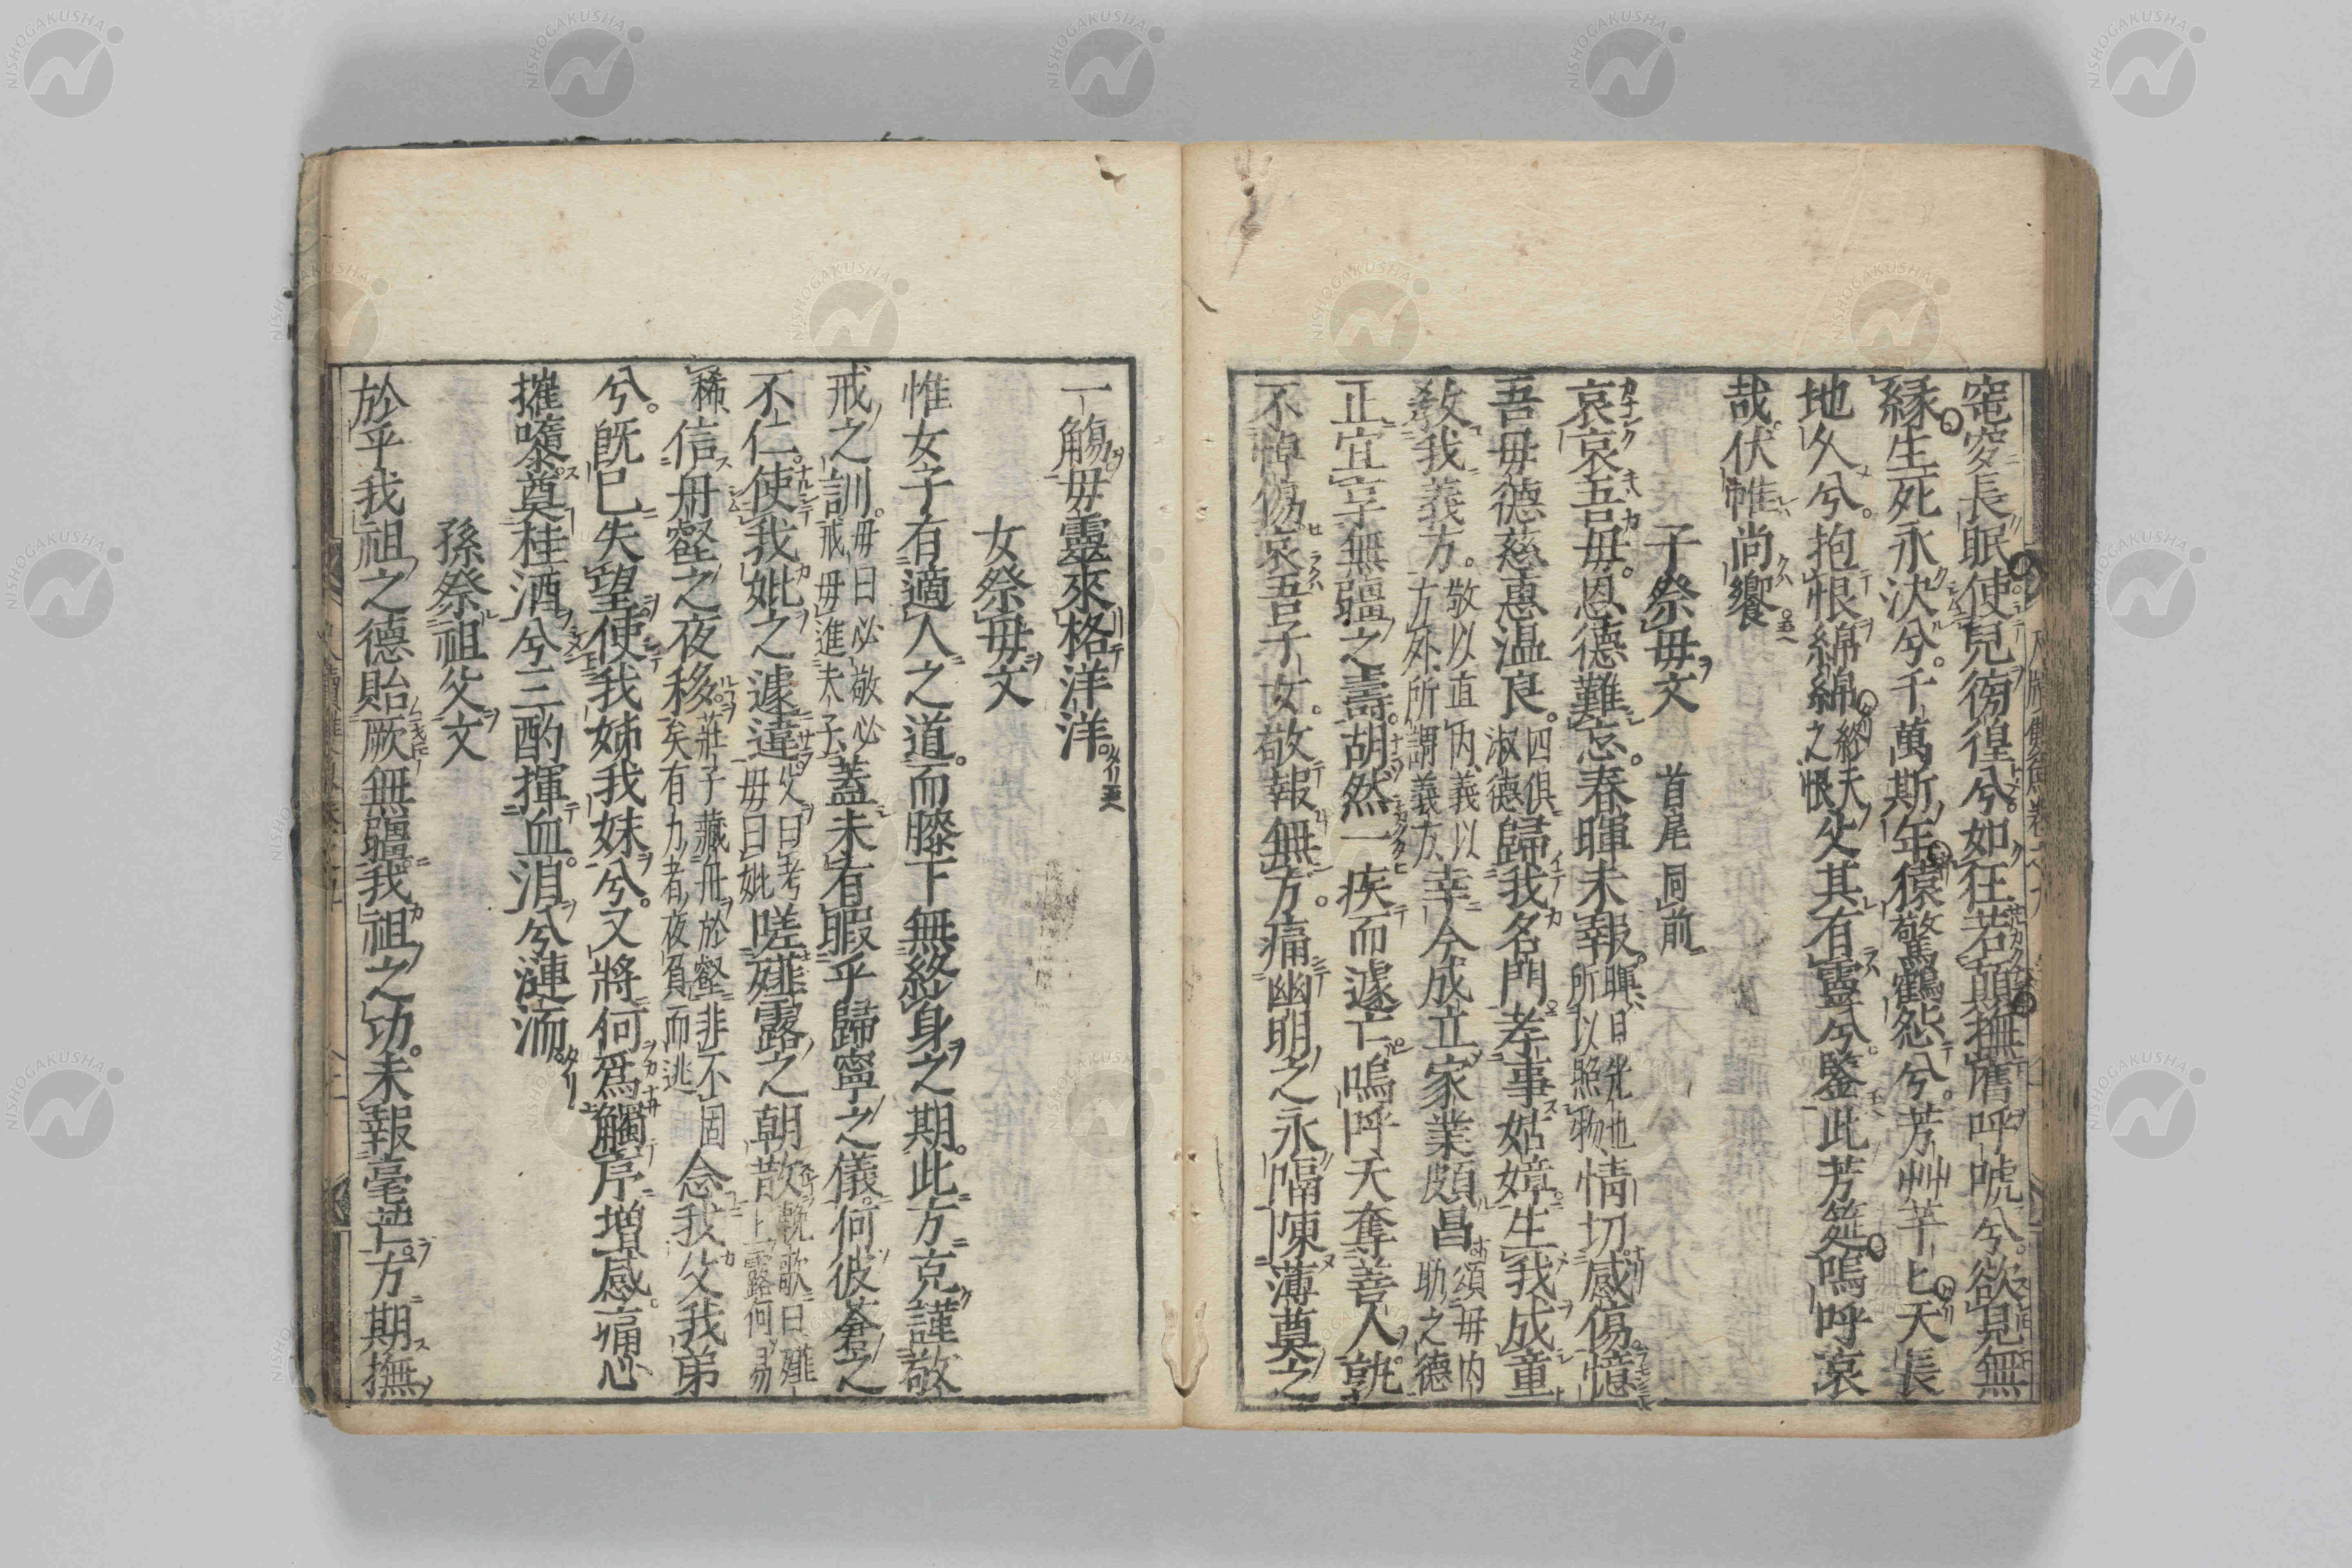 窀穸長眠使兒徬徨兮如狂若顛撫膺呼號兮欲見無
縁生死永決兮千萬斯年猿驚鶴怨兮芳艸芊匕天長
地久兮抱恨綿綿終天之恨父其有靈兮鑒此芳筵嗚呼哀
哉伏惟尚饗
子祭毋文 首尾同前
哀哀吾毋恩德難忘春暉未報暉日光也所以照物情切感傷憶
吾毋德慈惠温良四俱淑德歸我名門孝事姑嫜生我成童
教我義方敬以直内義以方外所謂義方幸今成立家業頗昌頌毋内助之德
正宜享無疆之壽胡然一疾而遽亡嗚呼天奪善人孰
不悼傷哀吾子女敬報無方痛幽明之永隔陳薄奠之
一觴毋靈來格洋洋
女祭毋文
惟女子有適人之道而膝下無終身之期此方克謹敬
戒之訓毋曰必敬必戒毋進未子蓋未有暇乎歸寧之儀何彼蒼之
不仁使我妣之遽違父曰考毋曰妣嗟薤露之朝散輓歌曰薤上露何易晞
稀信舟壑之夜移莊子藏舟於壑非不固矣有力者夜負而逃念我父我弟
兮既已失望使我姊我妹兮又將何爲觸序増感痛心
摧隳奠桂酒兮三酌揮血淚兮漣洏
孫祭祖父文
於乎我祖之德貽厥無疆我祖之功未報毫芒方期撫